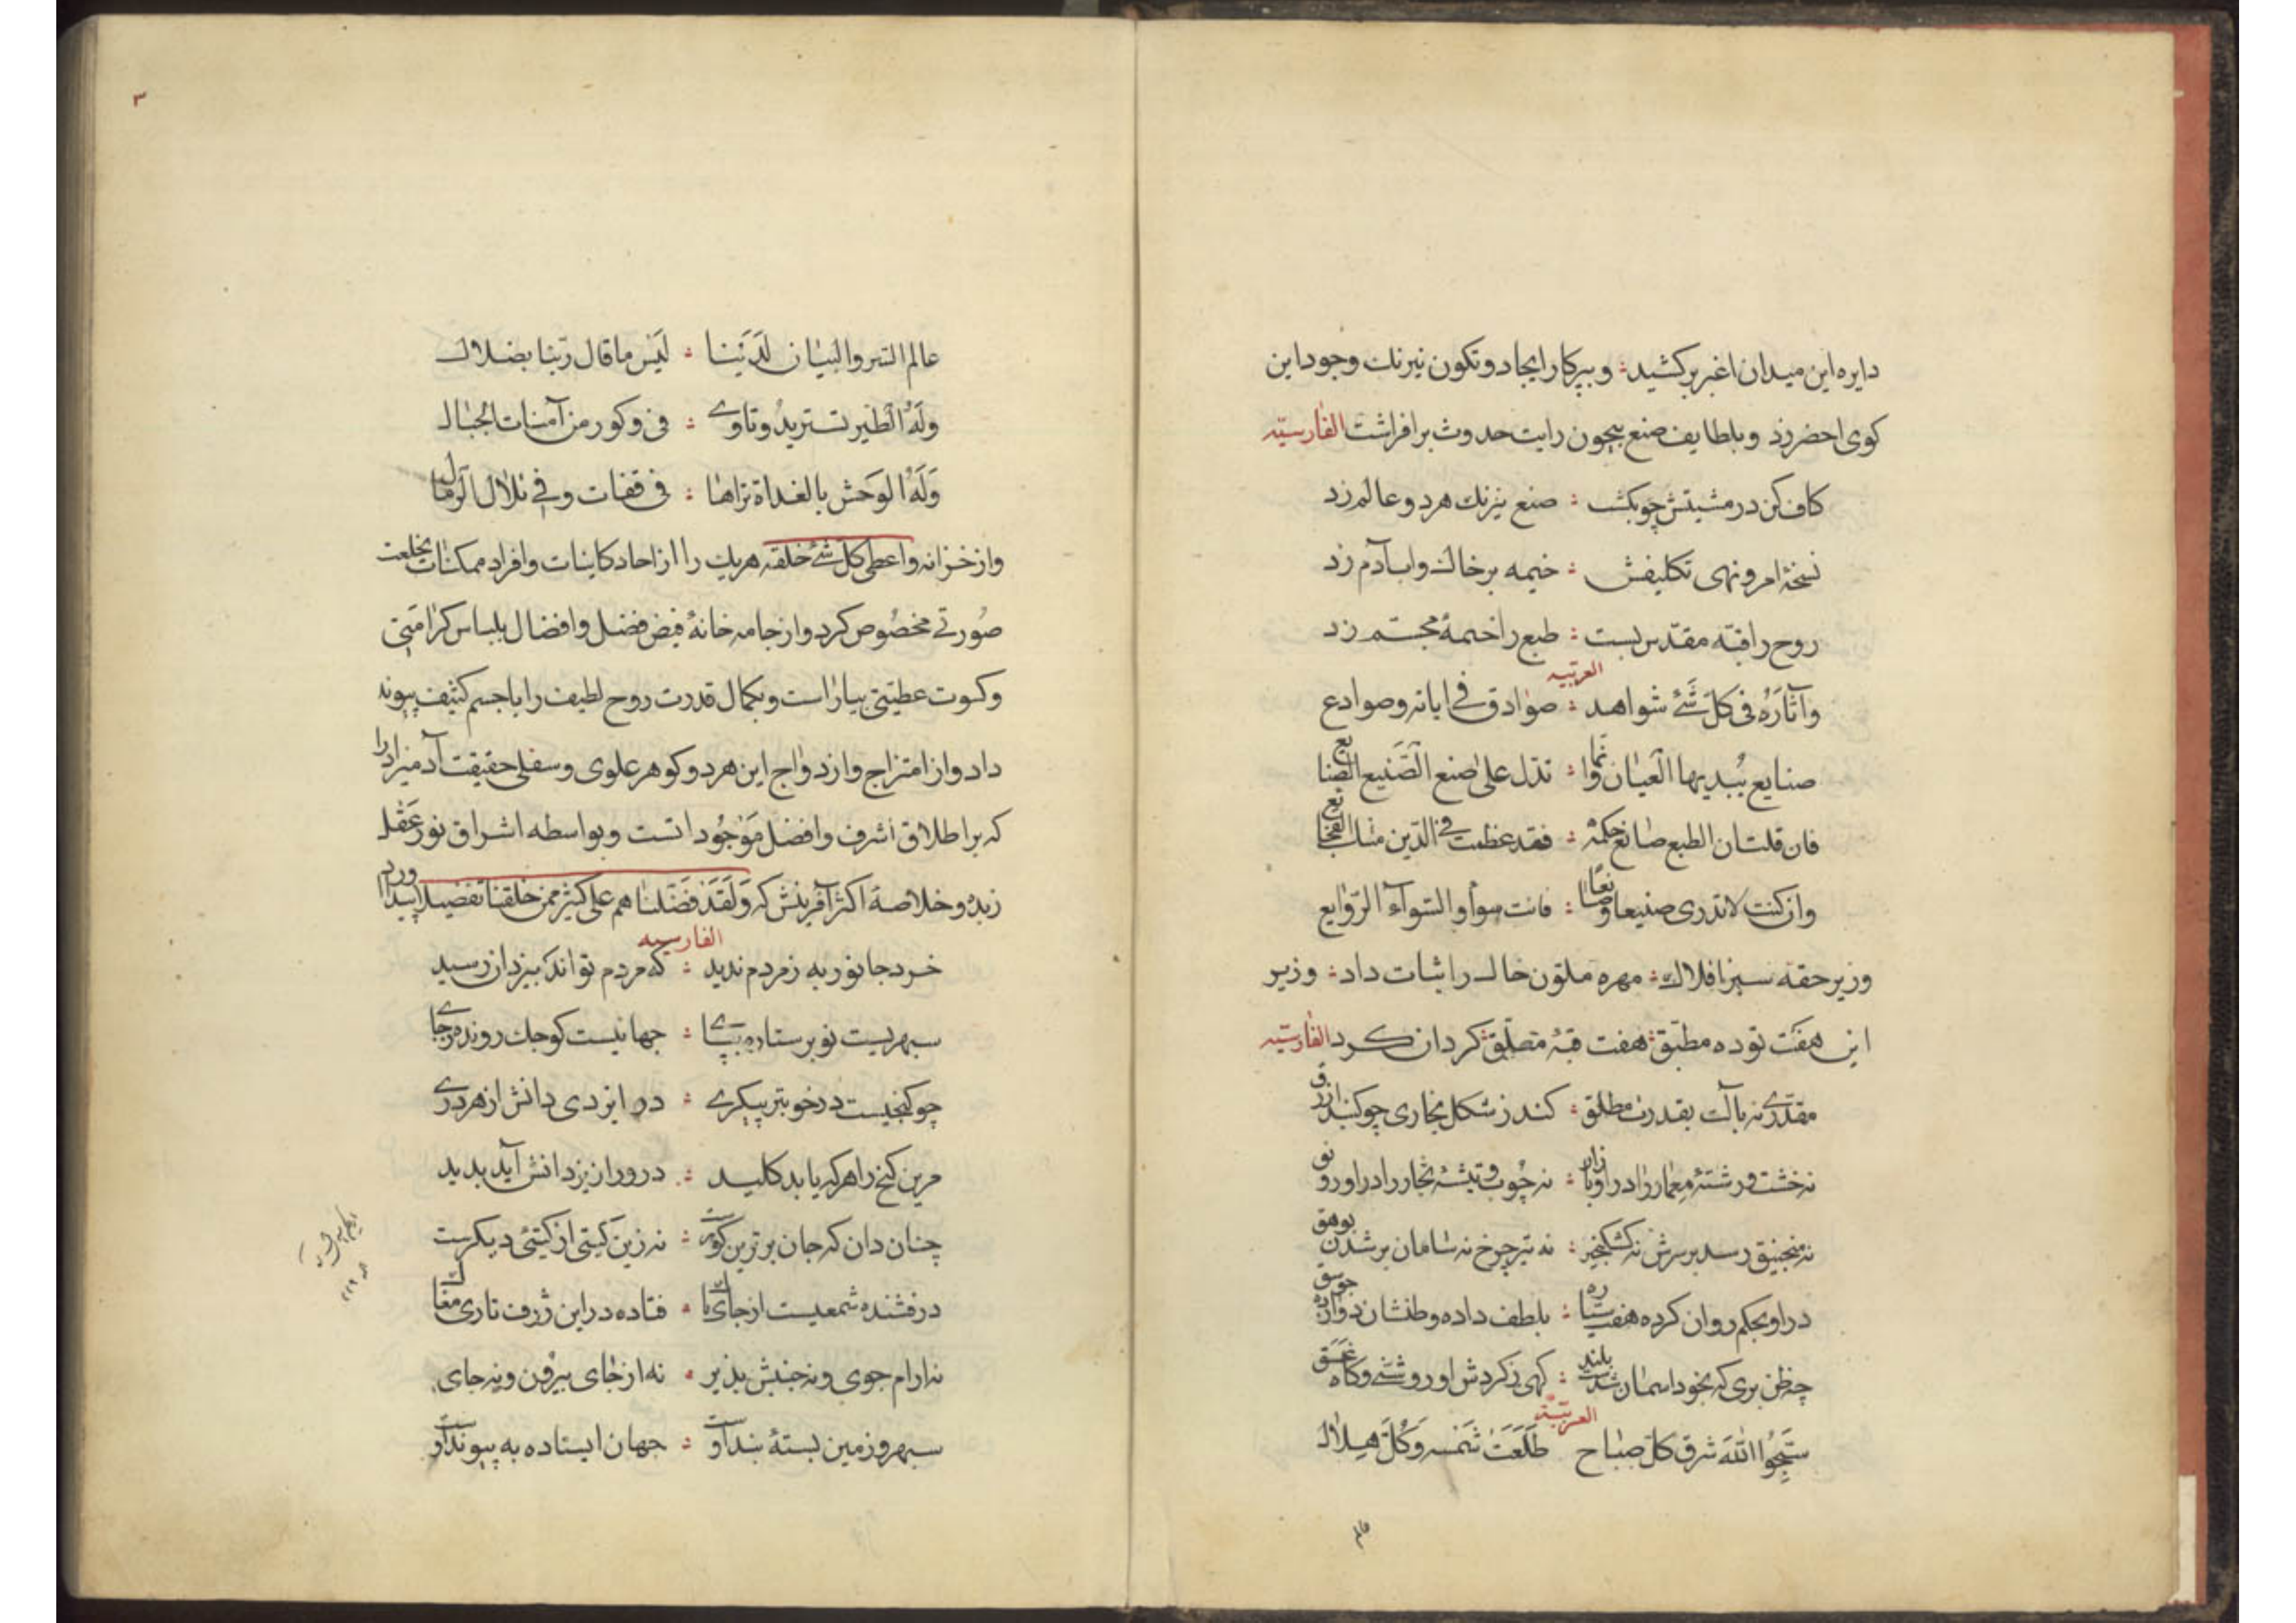 دایره این میدان اغبر برکشید؛ و بپرکار ایجاد و تکون نیرنک وجود این
کوی احضر زد و بلطایف صنع بیچون رایت حدوث برافراشت الفارسیّه
کاف کن در مشیتش چو بکشت ؛ صنع نیرنك هر دو عالم زد
نسخهٔ امر و نهی تکلیفش ؛ خیمه بر خاك و اب آدم زد
روح را قبّه مقدّس بست ؛ طبع را خیمهٔ مجسّم زد
العربیه
وآثَارُهُ فی کلّ شَئ شواهد ؛ صوادق فی ایاته وصوادع
صنایع یُبدیها العیان وانّما ؛ تدل علیٰ صنع الصَّنیع الصنایع
فان قلت ان الطبع صانع حکمة ؛ فقد عظمت فی الدّین منك الفجایع
وان کنت لاتدری صنیعا وصانعًا ؛ فانت سوأ والسّوآء الرّوابع
وزیر حقهٔ سبز افلاك ؛ مهره ملوّن خاك را ثبات داد ؛ وزیر
این هفَت توده مطبّق ؛ هفت قبّهٔ معلّق کردان کرد الفارسیّه
مقدّری نه بآلت بقدرت مطلق ؛ کند ز شکل بخاری چو کنبد ازرق
نه خشت و رشتهٔ معمار را در او بازار ؛ نه چُوب و تیشهٔ نجّار را در او رونق
نه منجنیق رسد بر سرش نه کشکنجیر ؛ نه تیر چرخ نه سامان بر شدن بوهق
در او بحکم روان کرده هفت سیّاره ؛ بلطف داده وطنشان دوازده جوسق
چه ظن بری که بخود اسمان شدست بلند ؛ کهی ز کردش او روشنی و کاه غسَق
العربیّة
سَبّحُوا اللّٰهَ شرق کلّ صباح طَلَعَتْ شَمْسه وَکُلّ هِلال
عالم
۳
عالم السّر والبیان لَدَیْنا ؛ لَیْس ما قال ربّنا بضلال
وَلَهُ الطّیر تستریدُ وتاوی ؛ فی وکور من آمنات الجبال
وَلَهُ الوَحش بالغداة تراها ؛ فی قفات وفی تلال الرّمال
واز خزانه واعطی کلّ شئ خلقه هر یك را از احاد کاینات وافراد ممکنات بخلعت
صُورتی مخصُوص کرد واز جامه خانهٔ فیض فضل وافضال بلباس کرامتی
وکسوت عطیتی بیاراست وبکمال قدرت روح لطیف را با جسم کثیف پیوند
داد واز امتزاج وازدواج این هر دو کوهر علوی وسفلی حقیقت آدمیزاد را
که بر اطلاق اشرف وافضل مَوجُوداتست وبواسطه اشراق نور عَقل
زبده وخلاصهٔ اکثر آفرینش که وَلَقَدْ فَضّلنا هم علی کثیر ممن خلقنا تفضیلا پیدا اورد
الفارسیه
خرد جانور به ز مردم ندید ؛ که مردم تواند بیزدان رسید
سپهریست نو بر ستاره بپای ؛ جهانیست کوچك رونده ز جای
چو کنجیست در خوبتر پیکری ؛ در ایزدی دانش از هر دری
مرین کنج را هر که یابد کلید ؛ در و راز یزدانش آید پدید
چنان دان که جان برترین کوهرست ؛ نه زین کیتی از کیتئی دیکرست
درفشنده شمعیست از جای پاك ؛ فتاده در این ژرف تاری مغاك
نه ارام جوی ونه جنبش پذیر ؛ نه از جای بیرون ونه جای
سپهر و زمین بستهٔ بند اوست ؛ جهان ایستاده به پیوند اوست